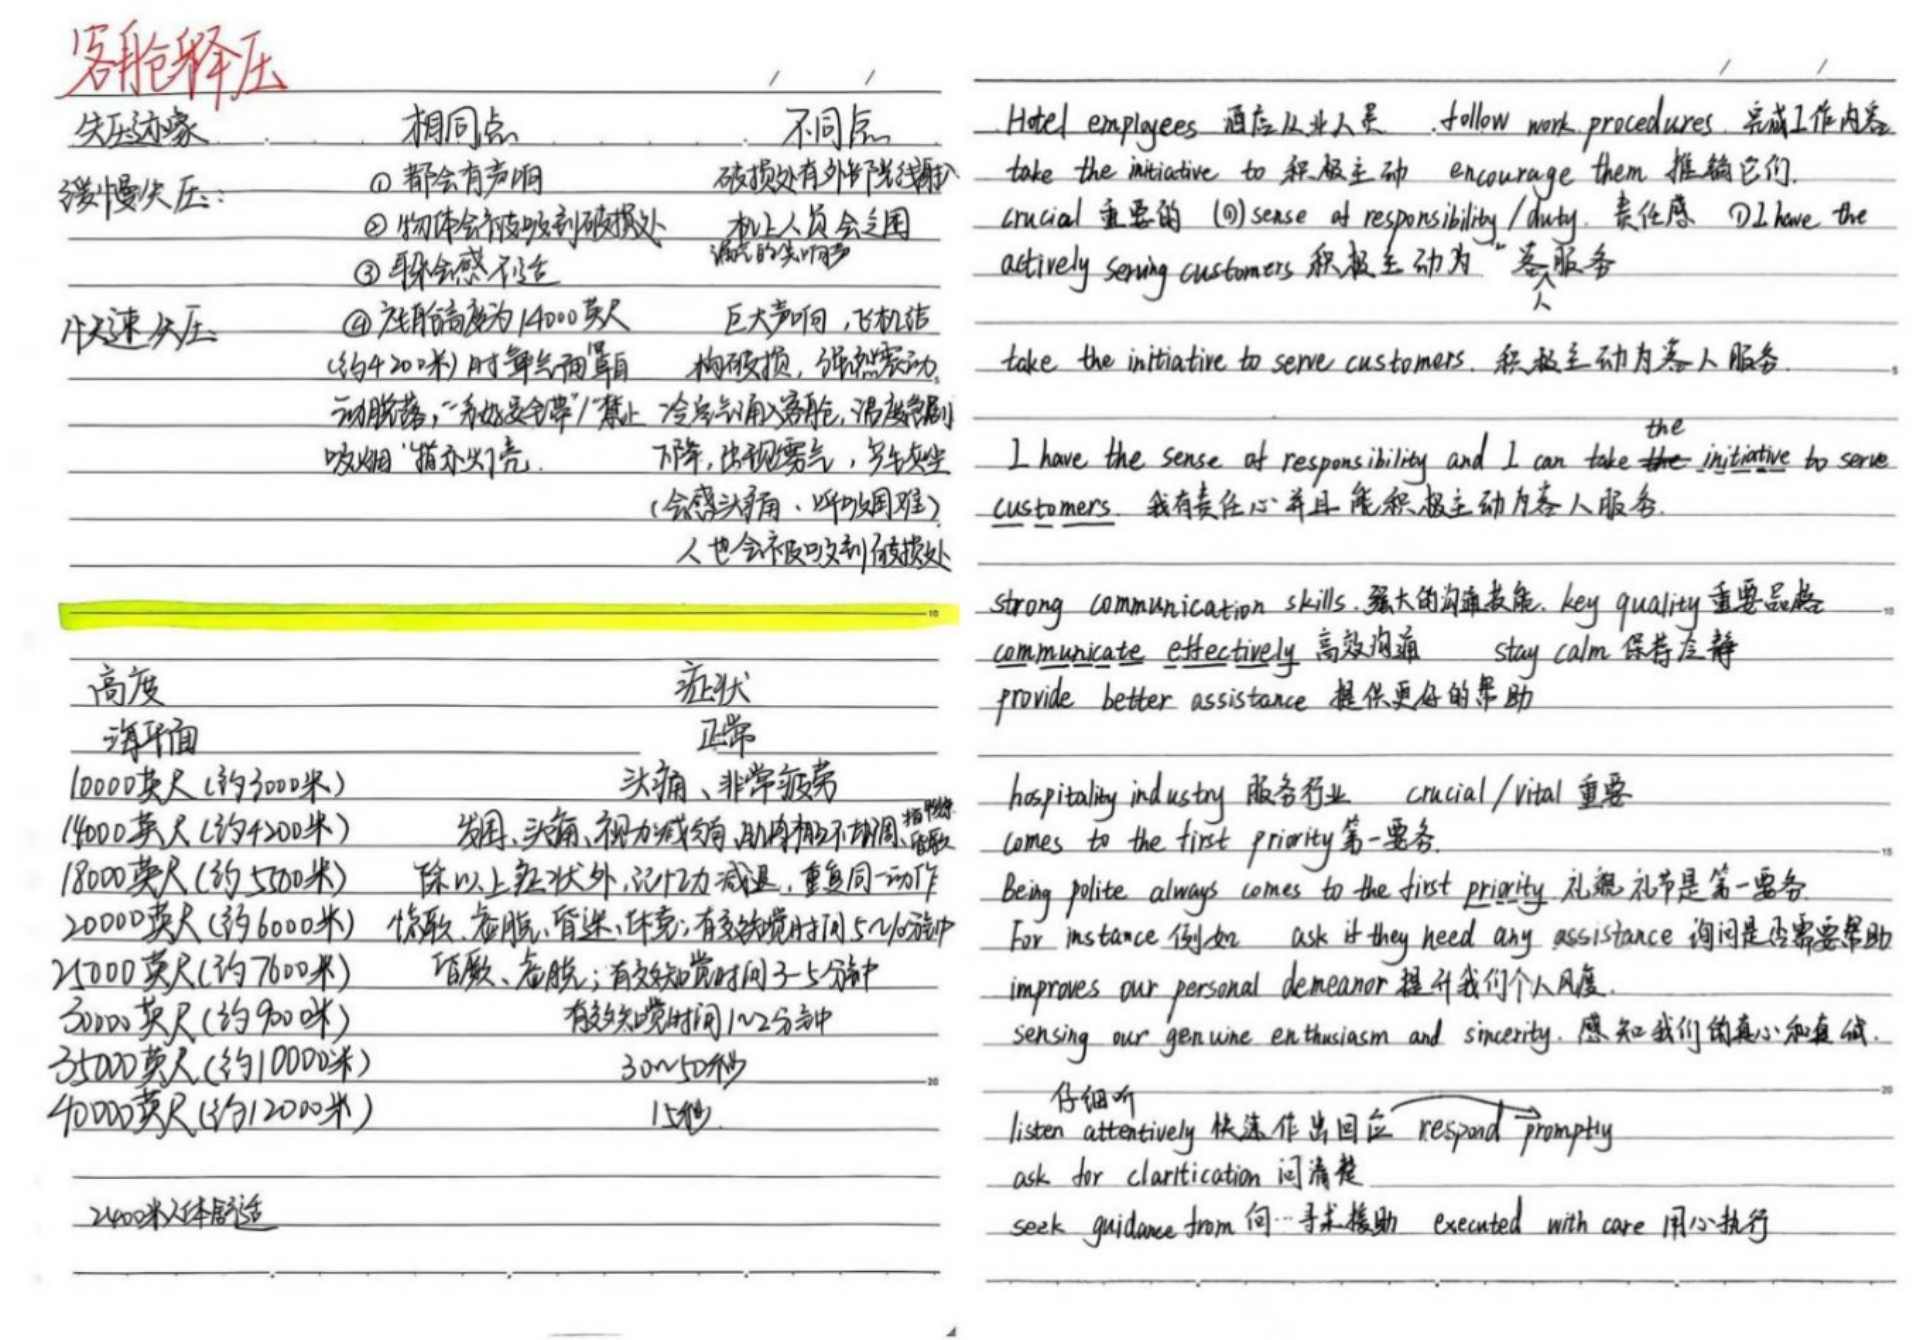 客舱释压
失压迹象 相同点 不同点
缓慢失压: ① 都会有声响 破损处有外部光线射入
② 物体会被吸到破损处 机上人员会立困
漏气的尖响声
③ 耳朵会感不适
快速失压 ④ 座舱高度为14000英尺 巨大声响,飞机结
(约4200米)时氧气面罩自 构破损,强烈震动
动脱落,"系好安全带"/"禁止 冷空气涌入客舱,温度急剧
吸烟"指示灯亮. 下降,出现雾气,
(会感头痛、呼吸困难)
人也会被吸到破损处
10
高度 症状
海平面 正常
10000英尺(约3000米) 头痛、非常疲劳
14000英尺(约4200米) 发困、头痛、视力减弱、肌肉相互不协调、
18000英尺(约5500米) 除以上症状外,记忆力减退,重复同一动作
20000英尺(约6000米) 惊厥、虚脱、昏迷、休克;有效知觉时间5~10分钟
25000英尺(约7600米) 昏厥、虚脱;有效知觉时间3-5分钟
30000英尺(约900米) 有效知觉时间1~2分钟
35000英尺(约10000米) 30~50秒
20
40000英尺(约12000米) 15秒
2400米人体舒适
Hotel employees 酒店从业人员 .follow work procedures. 完成工作内容
take the initiative to 积极主动 encourage them 推销它们.
crucial 重要的 (的)sense of responsibility/duty. 责任感 ①I have the
actively serving customers 积极主动为"客服务
人
take the initiative to serve customers. 积极主动为客人服务.
5
the
I have the sense of responsibility and I can take the initiative to serve
customers. 我有责任心并且能积极主动为客人服务.
strong communication skills.强大的沟通技能. key quality 重要品格
10
communicate effectively 高效沟通 stay calm 保持冷静
provide better assistance 提供更好的帮助
hospitality industry 服务行业 crucial/vital 重要
comes to the first priority 第一要务.
15
Being polite always comes to the first priority 礼貌礼节是第一要务.
For instance 例如 ask if they need any assistance 询问是否需要帮助
improves our personal demeanor 提升我们个人风度.
sensing our genuine enthusiasm and sincerity. 感知我们的真心和真诚.
20
仔细听
listen attentively 快速作出回应 respond promptly
ask for clarification 问清楚
seek guidance from 向…寻求援助 executed with care 用心执行